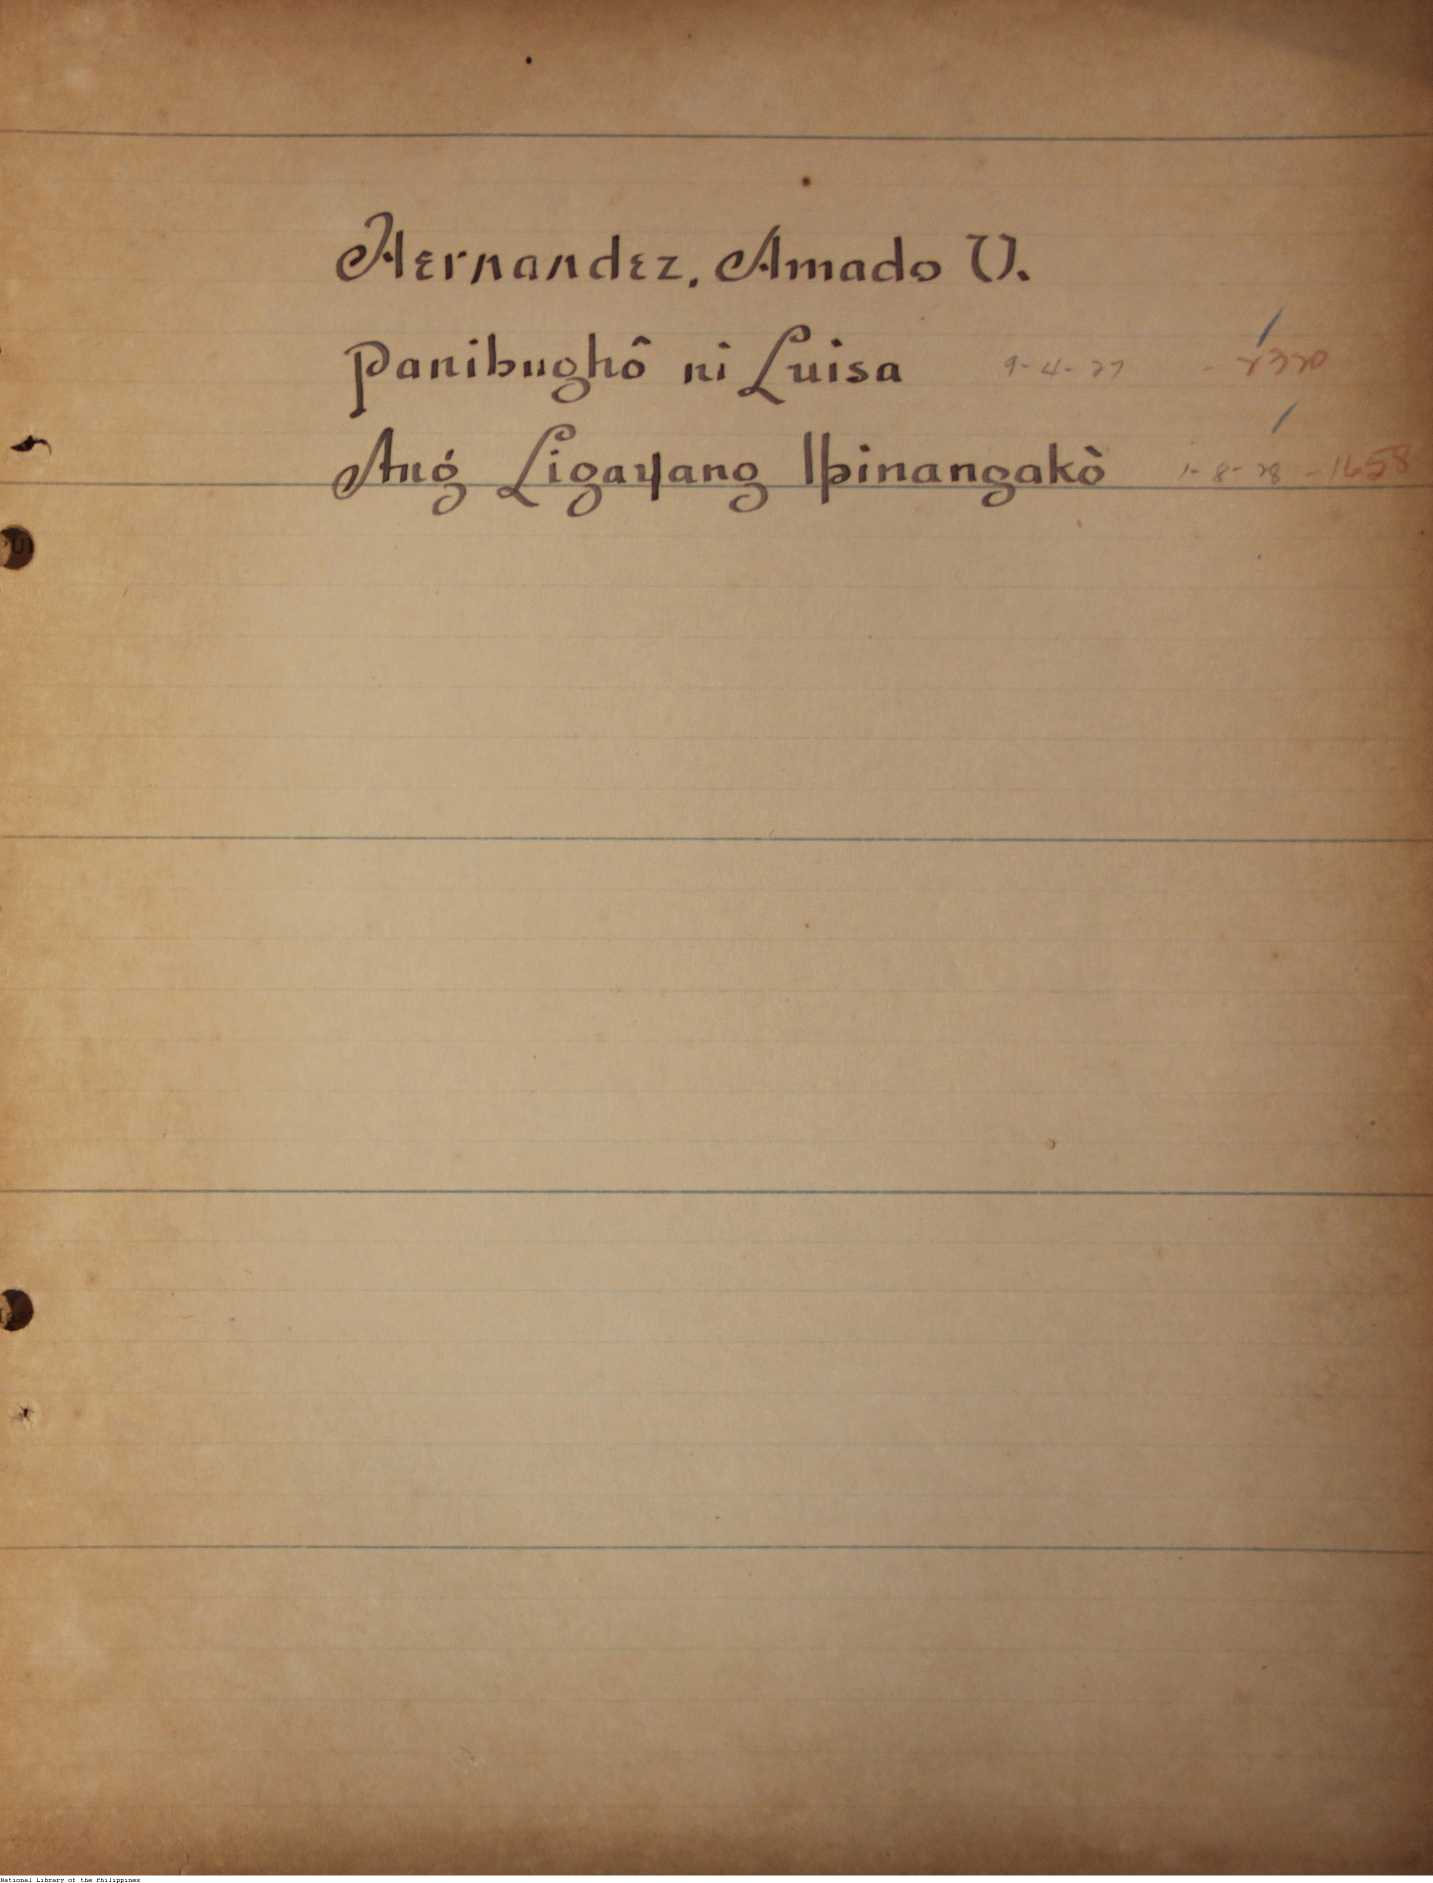 Hernandez, Amado V.
Panibughô ni Luisa 9-4-27
Ang Ligayang Ipinangakò 1-8-28 - 1658
National Library of the Philippines